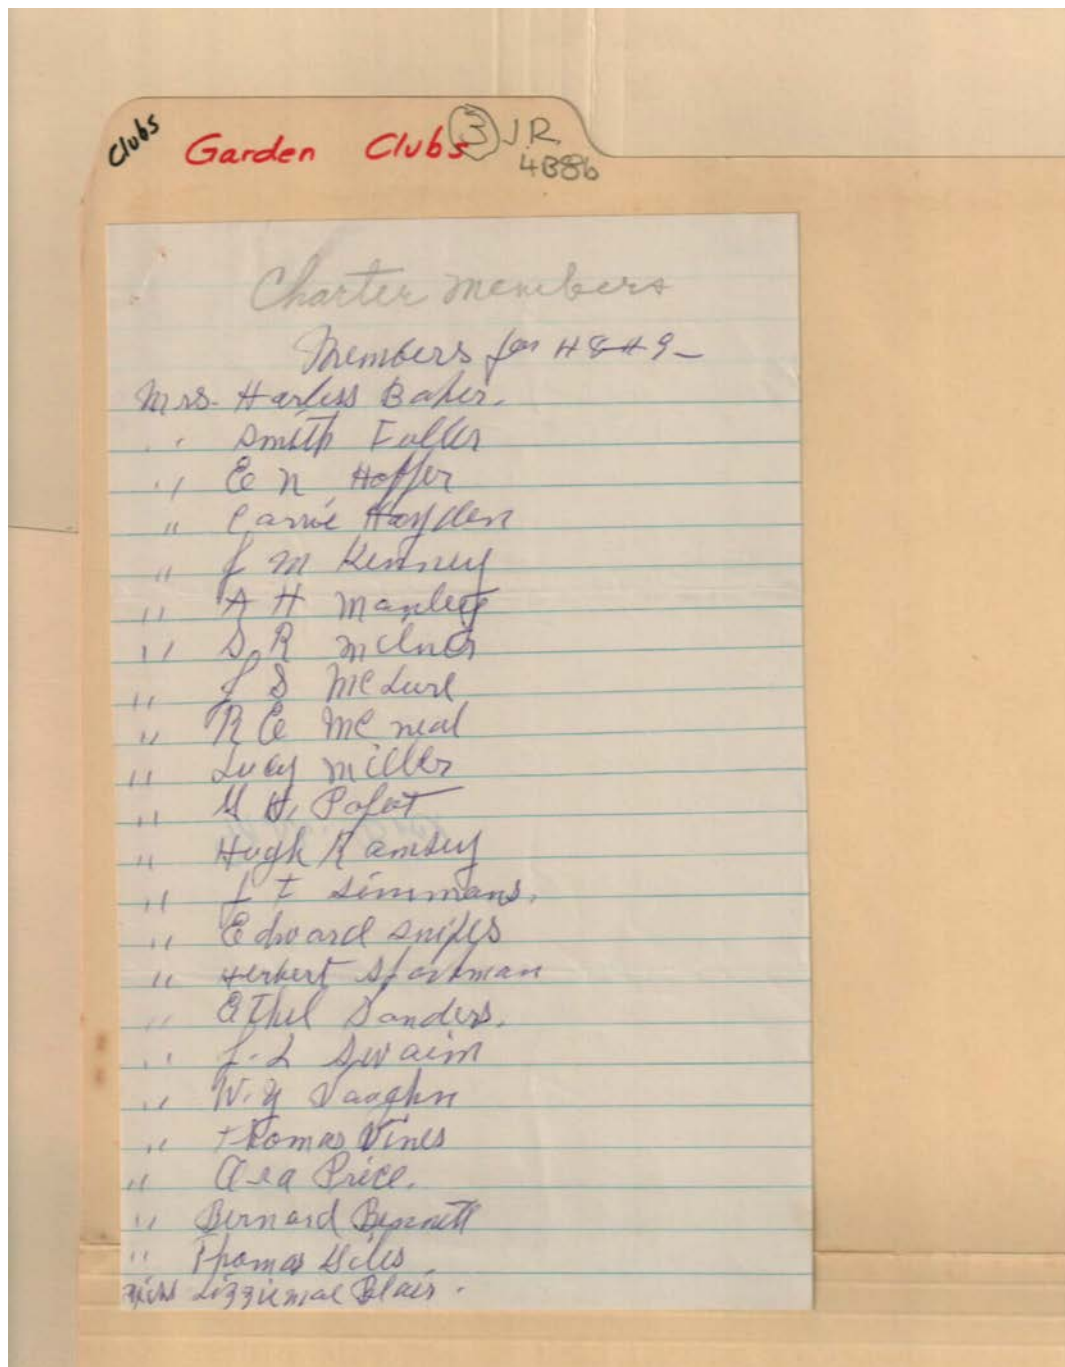 Clubs
Garden Clubs ③ J.R.
4B8b
Charter members
Members for 48-49-
Mrs. Harless Baker.
" Smith Fuller
" E N Hoffer
" Carrie Hayden
" J M Kenney
" A H Manley
" S R
" J S McLure
" R E McNeal
" Lucy Miller
" H.
" Hugh Ramsey
" J T Simmans.
" Edward Snipes
" Herbert Sparkman
" Ethel Sanders.
" J. L Swaim
" W. Y Vaughn
" Thomas Vines
" Asa Price.
" Bernard Bennett
" Thomas Giles
Miss Lizziemae Blair.